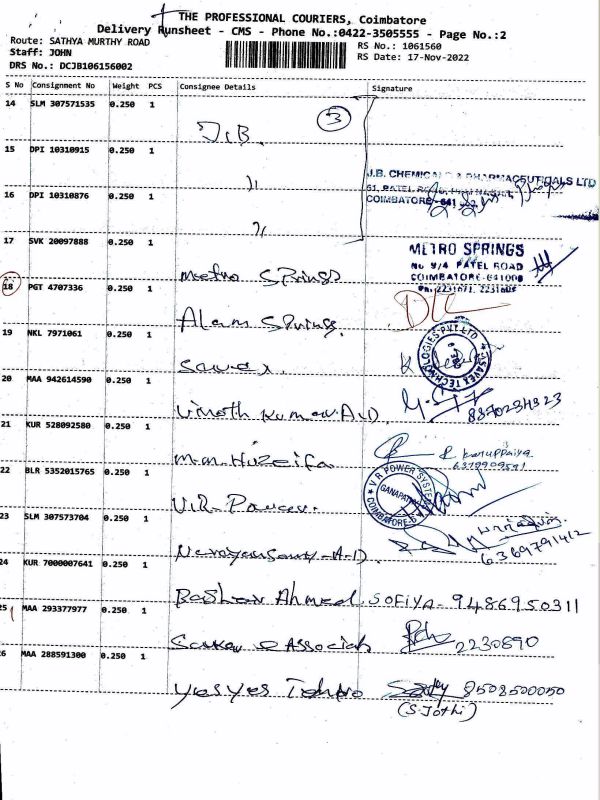 THE PROFESSIONAL COURIERS, Coimbatore
Delivery Runsheet - CMS - Phone No.:0422-3505555 - Page No.:2
Route: SATHYA MURTHY ROAD
RS No.: 1061560
Staff: JOHN
RS Date: 17-Nov-2022
DRS No.: DCJB106156002
S No Consignment No Weight PCS Consignee Details Signature
14 SLM 307571535 0.250 1
J.B. 3
15 DPI 10310915 0.250 1
J.B. CHEMICALS & PHARMACEUTICALS LTD
16 DPI 10310876 0.250 1
COIMBATORE-641
17 SVK 20097888 0.250 1
METRO SPRINGS
No 9/4 PATEL ROAD
COIMBATORE-641009
Metro Springs
18 PGT 4707336 0.250 1
Alam Springs
19 NKL 7971061 0.250 1
20 MAA 942614590 0.250 1
Vinoth Kumar A.D
21 KUR 528092580 0.250 1
M.M. Huzeifa
22 BLR 5352015765 0.250 1
V R POWER SYSTEMS
GANAPATHY
COIMBATORE-6
V.R. Power
23 SLM 307573704 0.250 1
6369791412
24 KUR 7000007641 0.250 1
Ahmed SOFIYA - 9486950311
25 MAA 293377977 0.250 1
Associates 2230890
26 MAA 288591300 0.250 1
Yes Yes 8508500050
(S. Jothi)